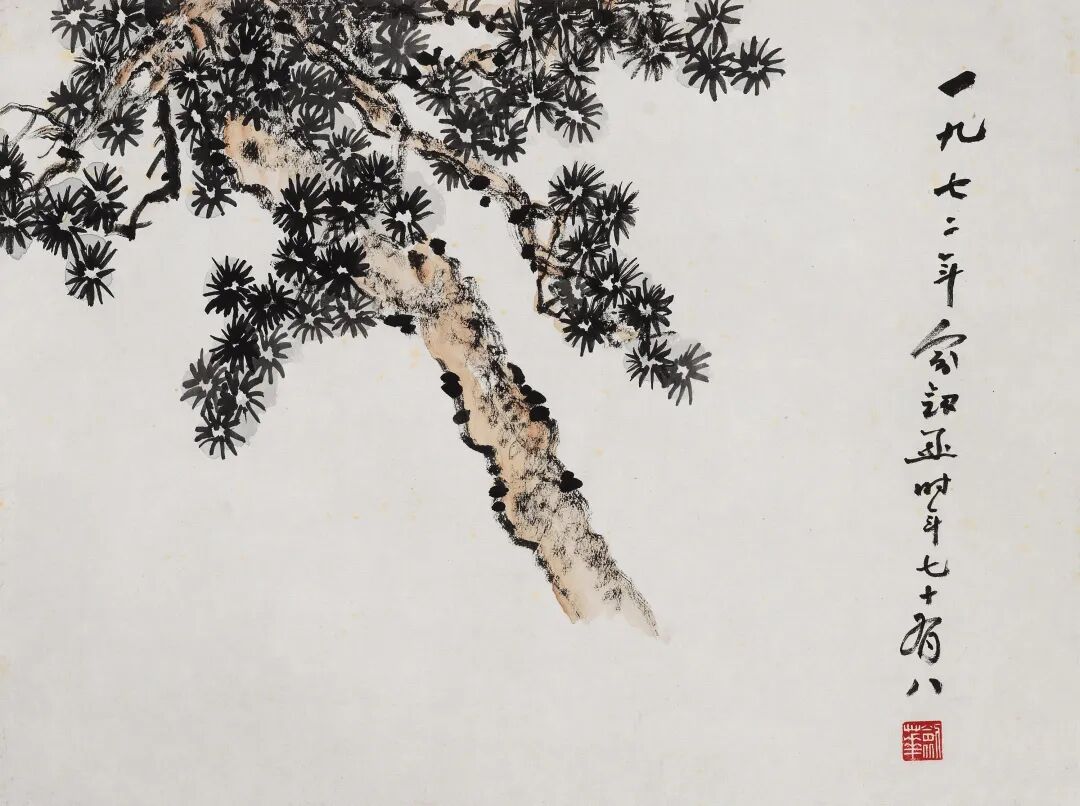 一九七二年俞劍華时年七十有八
劍華